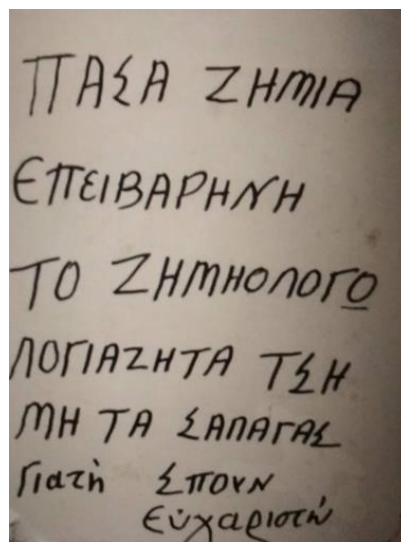 ΠΑΣΑ ΖΗΜΙΑ
ΕΠΕΙΒΑΡΗΝΗ
ΤΟ ΖΗΜΗΟΛΟΓΟ
ΛΟΓΙΑΖΗΤΑ ΤΣΗ
ΜΗ ΤΑ ΣΑΠΑΓΑΣ
Γιατὴ ΣΠΟΥΝ
Εὐχαριστὼ